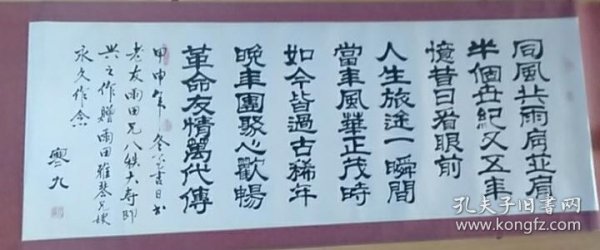 同風共雨肩並肩
半個世紀又五年
憶昔日看眼前
人生旅途一瞬間
當年風華正茂時
如今皆過古稀年
晚年團聚心歡暢
革命友情萬代傳
甲申年冬 書日书
老友雨田兄八秩大寿即
兴之作贈雨田雅琴兄嫂
永久作念
寒九
孔夫子旧书网
kongfz.com